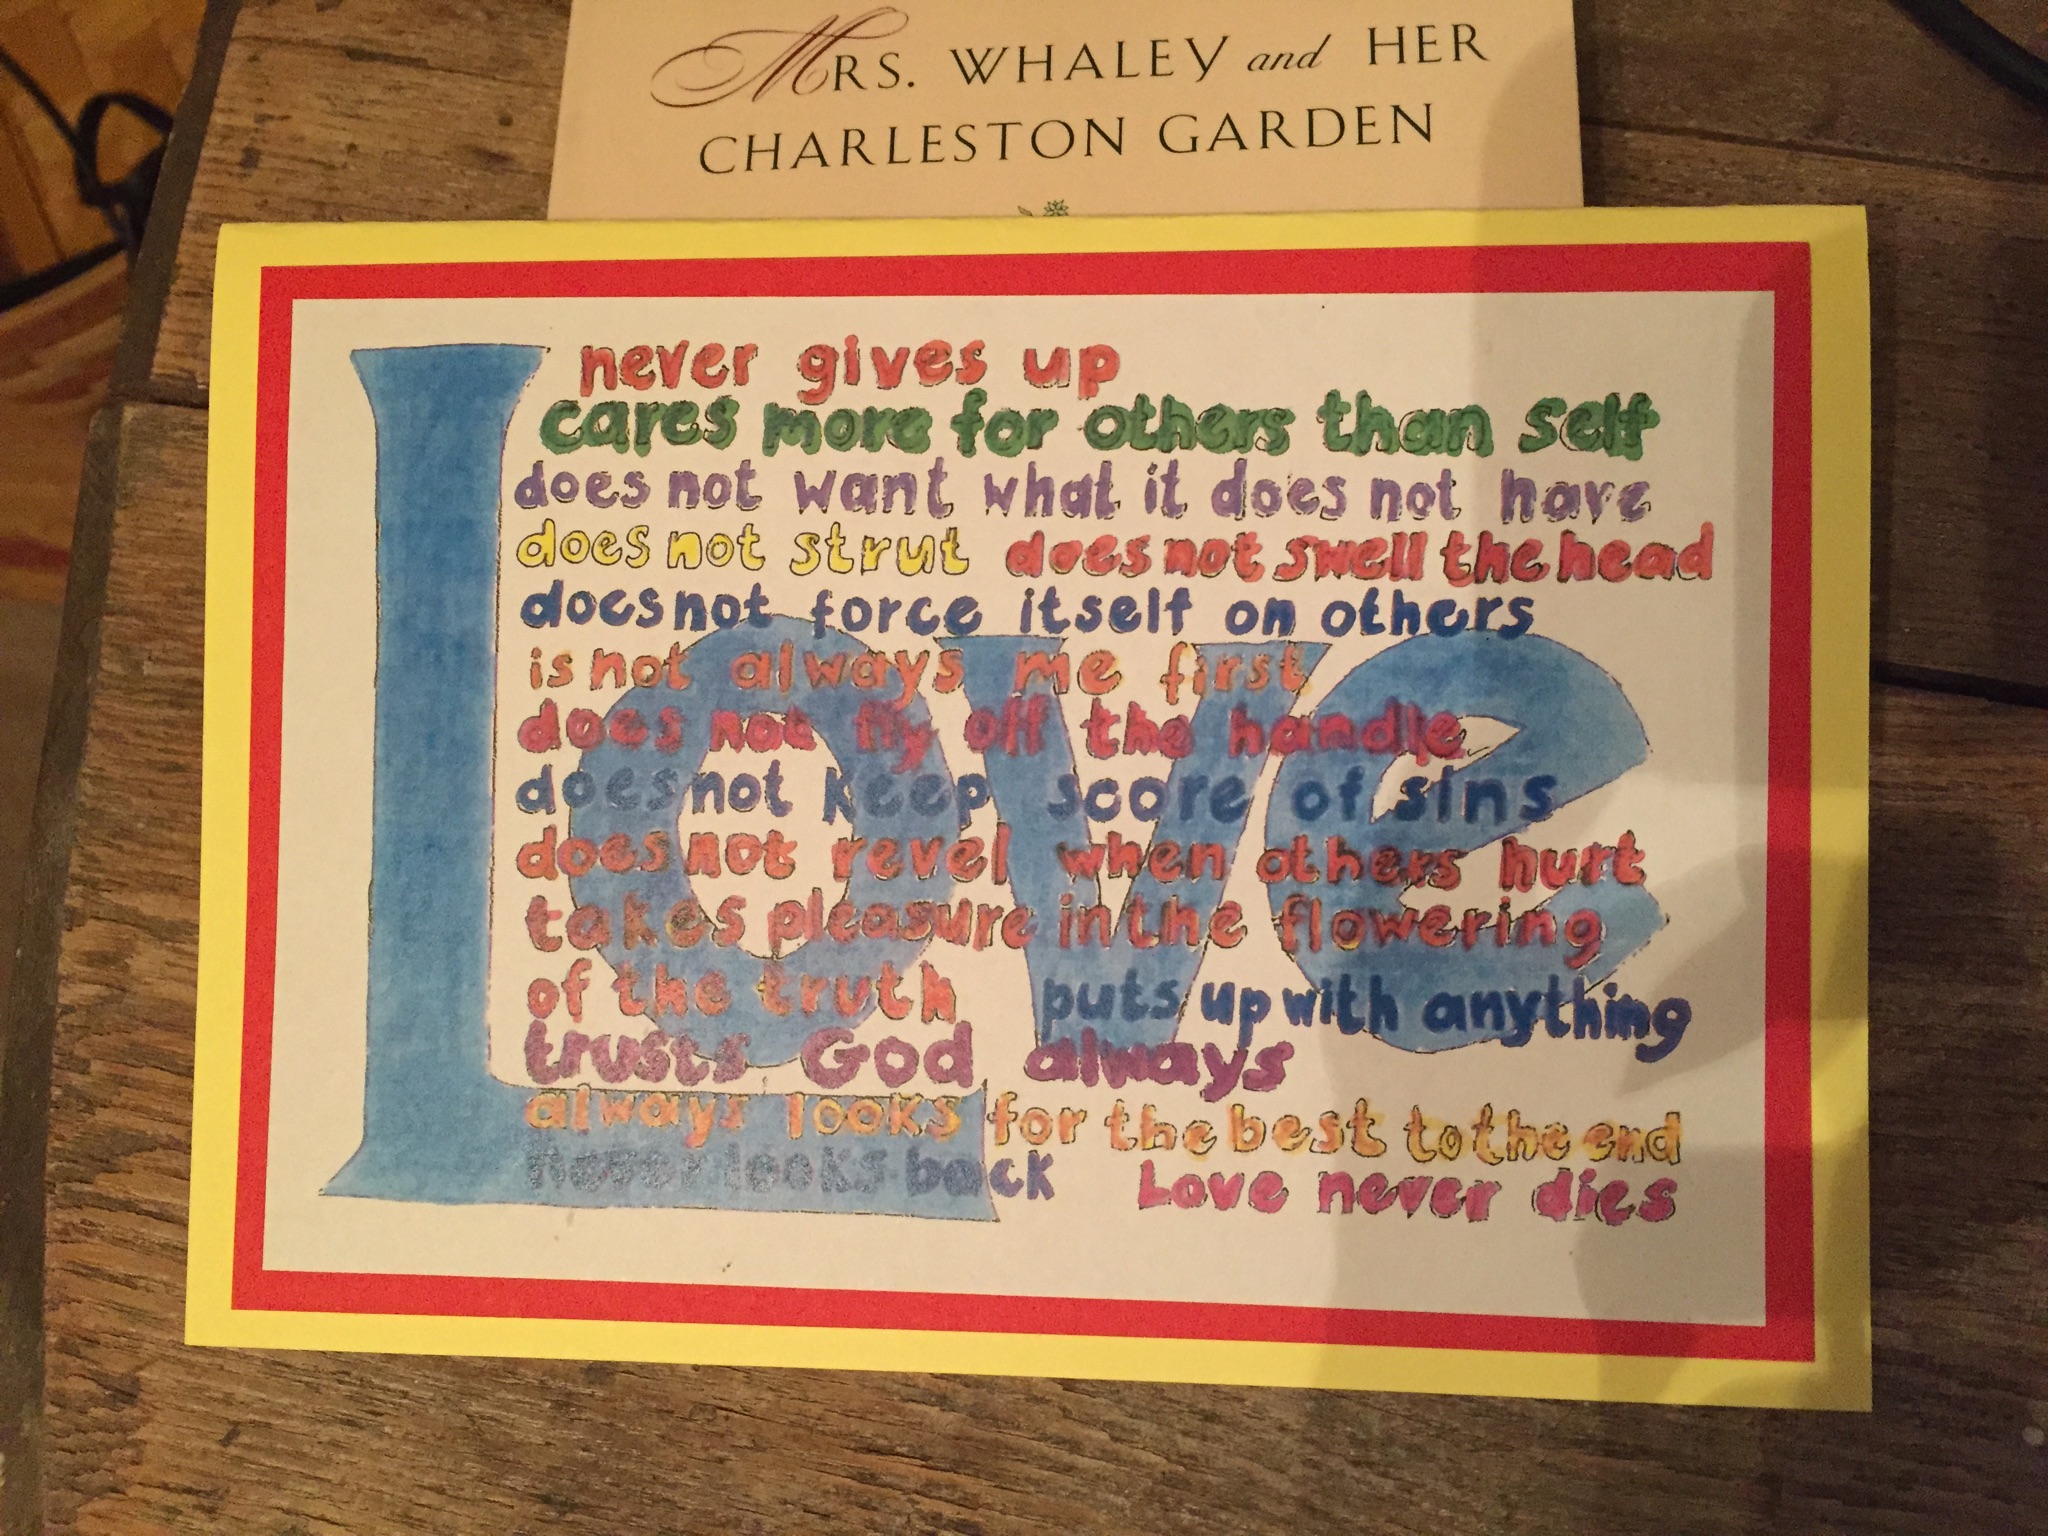 Mrs. Whaley and Her
Charleston Garden
Love
never gives up
cares more for others than self
does not want what it does not have
does not strut does not swell the head
does not force itself on others
is not always me first
does not fly off the handle
does not keep score of sins
does not revel when others hurt
takes pleasure in the flowering
of the truth puts up with anything
trusts God always
always looks for the best to the end
never looks back Love never dies